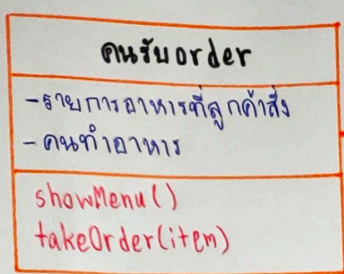 คนรับorder
-รายการอาหารที่ลูกค้าสั่ง
-คนทำอาหาร
showMenu()
takeOrder(item)